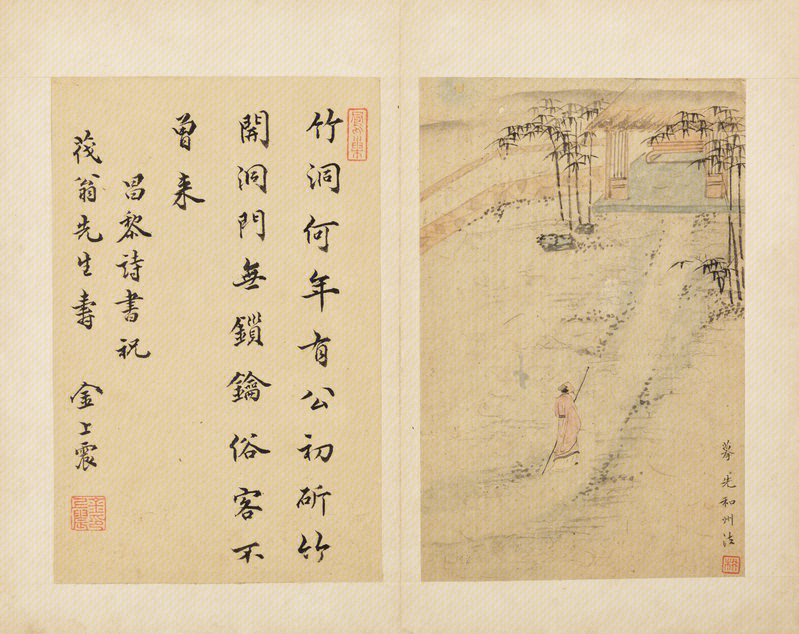 竹洞何年有公初斫竹
開洞門無鎖鑰俗客不
曾来
昌黎詩書祝
茂翁先生壽 金上震
摹先和州法